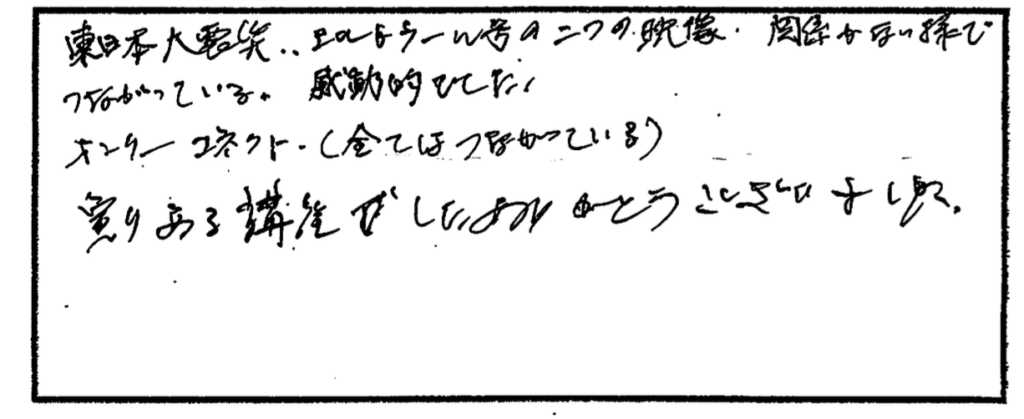 東日本大震災、エルトゥールル号の二つの映像。関係がない様で
つながっている。感動的でした。
オンリーコネクト.(全てはつながっている)
実りある講座でしたありがとうございました。